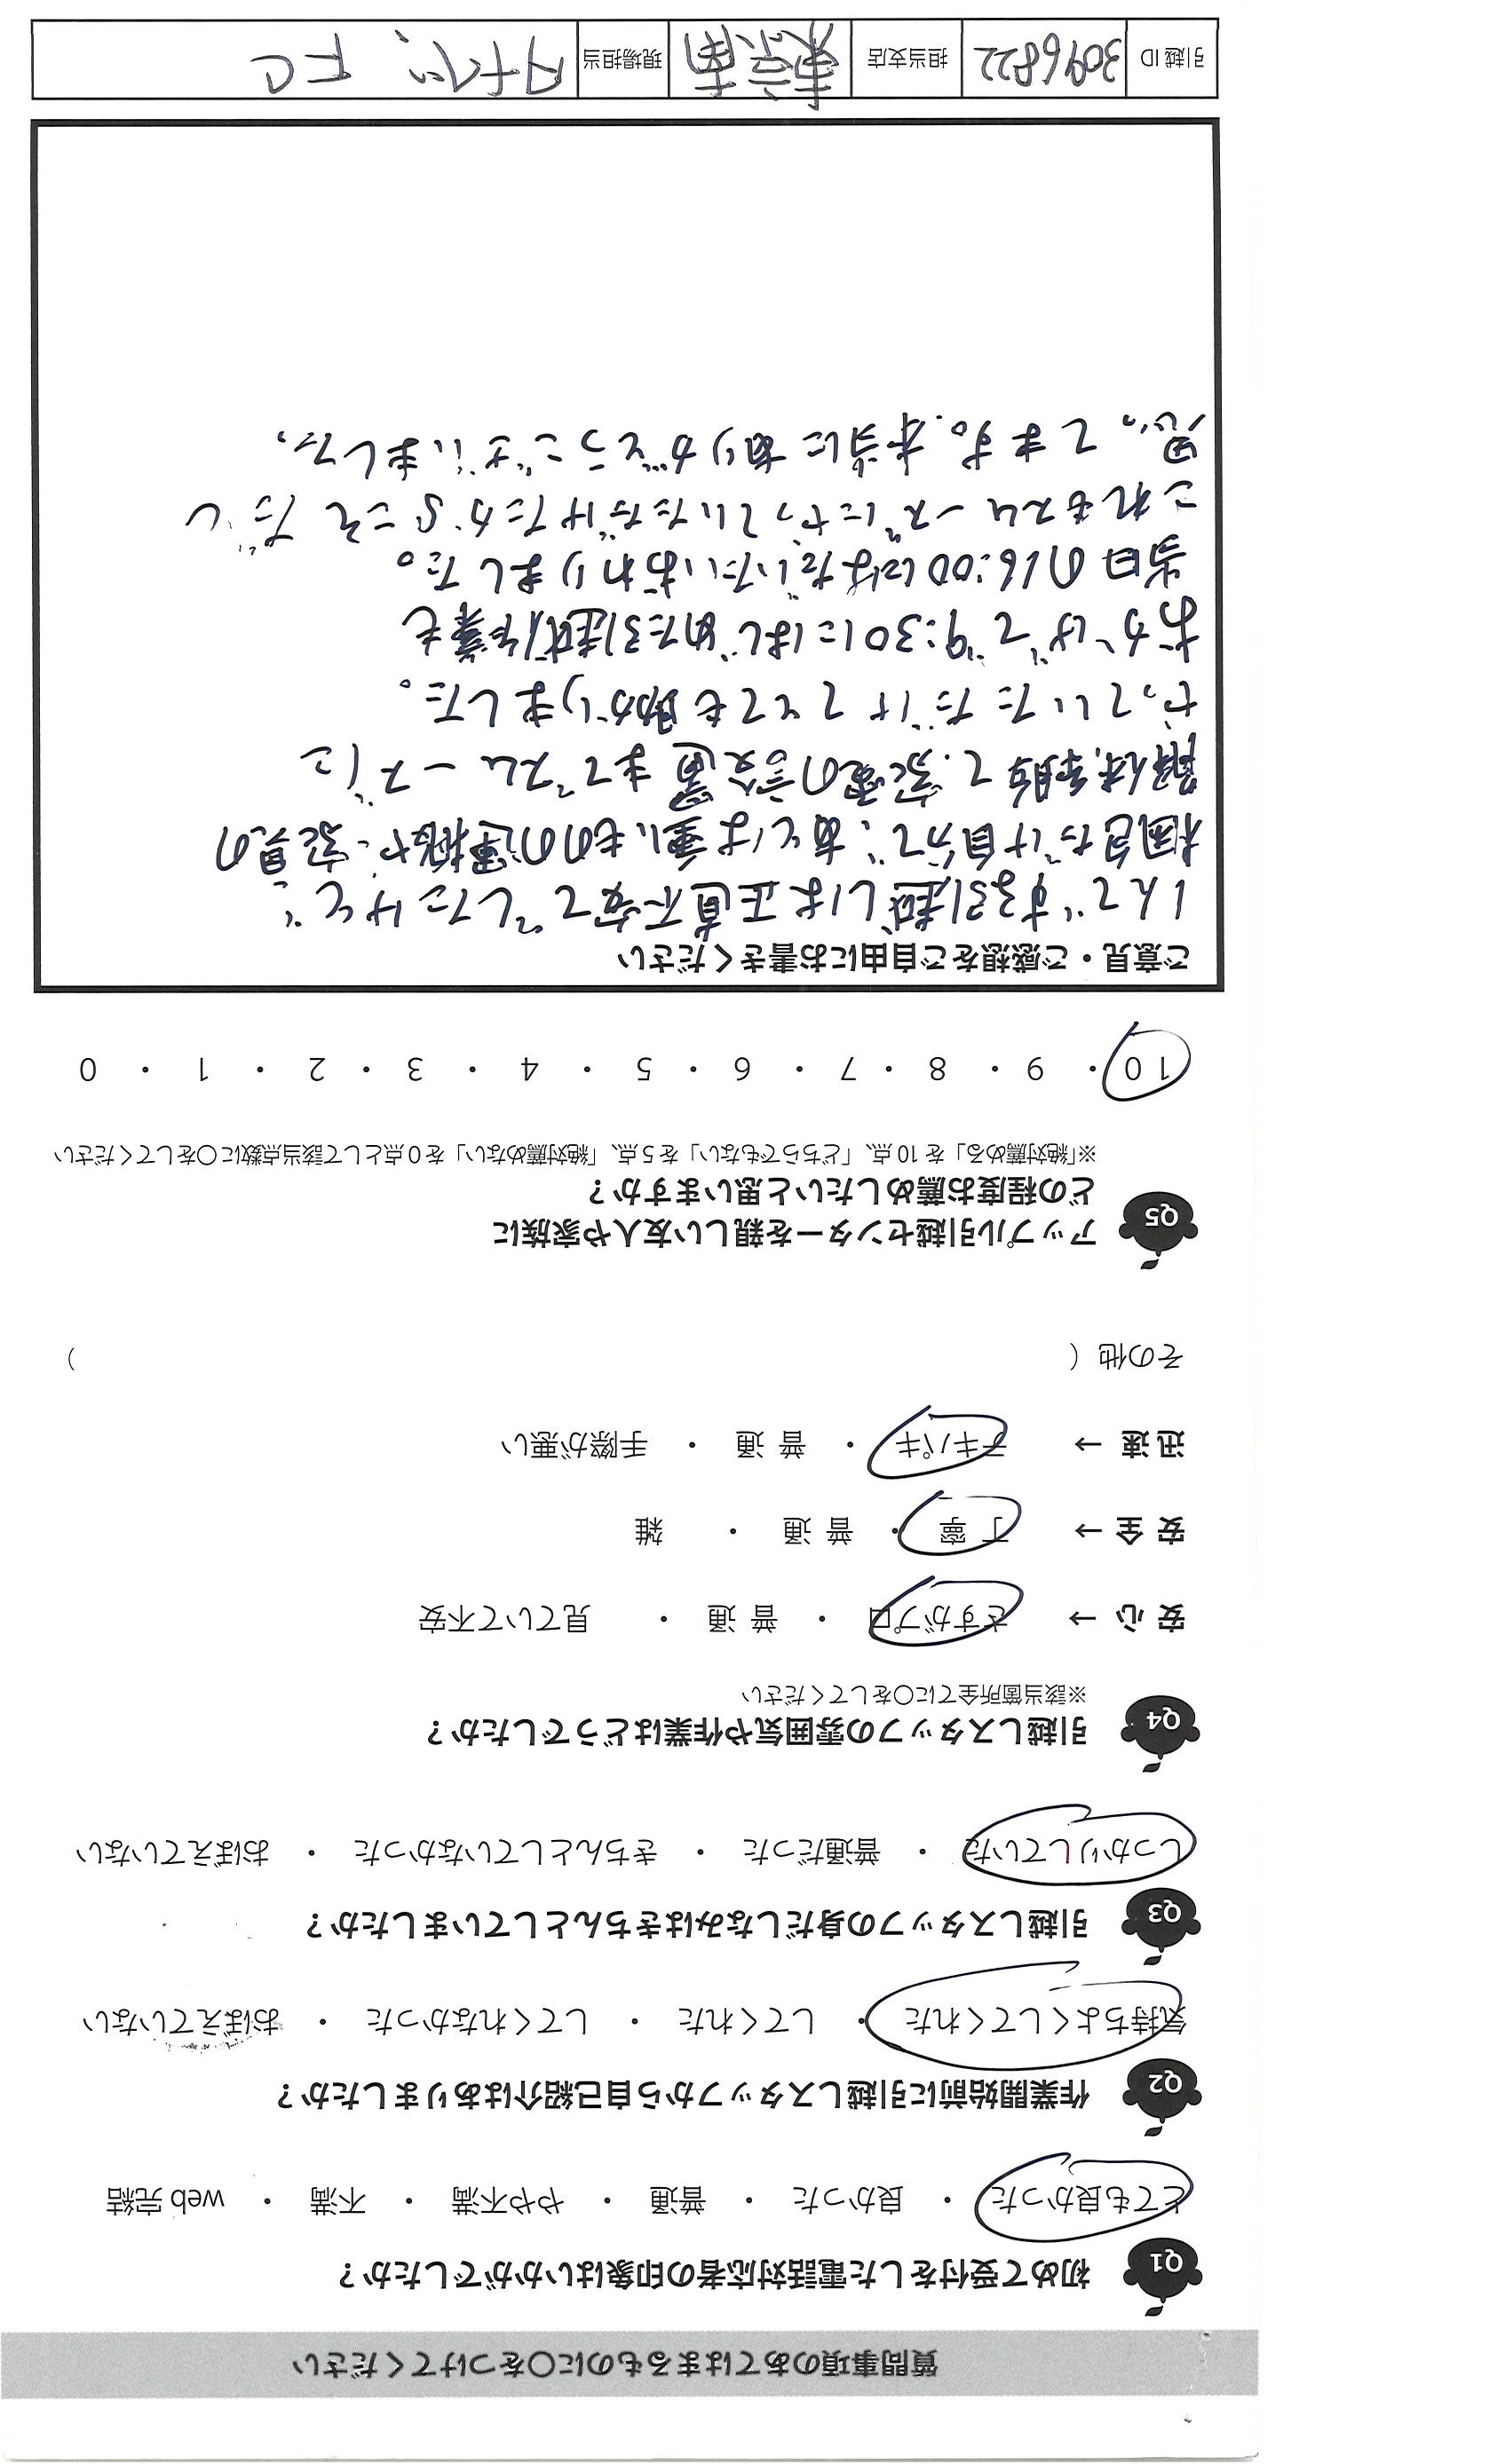 質問事項のあてはまるものに○をつけてください
Q1 初めて受付をした電話対応者の印象はいかがでしたか？
とても良かった ・ 良かった ・ 普通 ・ やや不満 ・ 不満 ・ web 完結
Q2 作業開始前に引越しスタッフから自己紹介はありましたか？
気持ちよくしてくれた ・ してくれた ・ してくれなかった ・ おぼえていない
Q3 引越しスタッフの身だしなみはきちんとしていましたか？
しっかりしていた ・ 普通だった ・ きちんとしていなかった ・ おぼえていない
Q4 引越しスタッフの雰囲気や作業はどうでしたか？
※該当箇所全てに○をしてください
安 心 → さすがプロ ・ 普 通 ・ 見ていて不安
安 全 → 丁 寧 ・ 普 通 ・ 雑
迅 速 → テキパキ ・ 普 通 ・ 手際が悪い
その他（ ）
Q5 アップル引越センターを親しい友人や家族に
どの程度お薦めしたいと思いますか？
※「絶対薦める」を 10 点、「どちらでもない」を 5 点、「絶対薦めない」を 0 点として該当点数に○をしてください
10 ・ 9 ・ 8 ・ 7 ・ 6 ・ 5 ・ 4 ・ 3 ・ 2 ・ 1 ・ 0
ご意見・ご感想をご自由にお書きください
1人でする引越しは正直不安でしたけど、
梱包だけ自分で、あとは重いものの運搬や、家具の
解体、家電の設置までスムーズに
やっていただけてとても助かりました。
おかげで9:30にはじめた引越し作業も
当日の16:00にはだいたいおわりました。
これもスムーズにやっていただけたからこそだと
思ってます。本当にありがとうございました。
引越 ID 3096822 担当支店 東京南 現場担当 FC